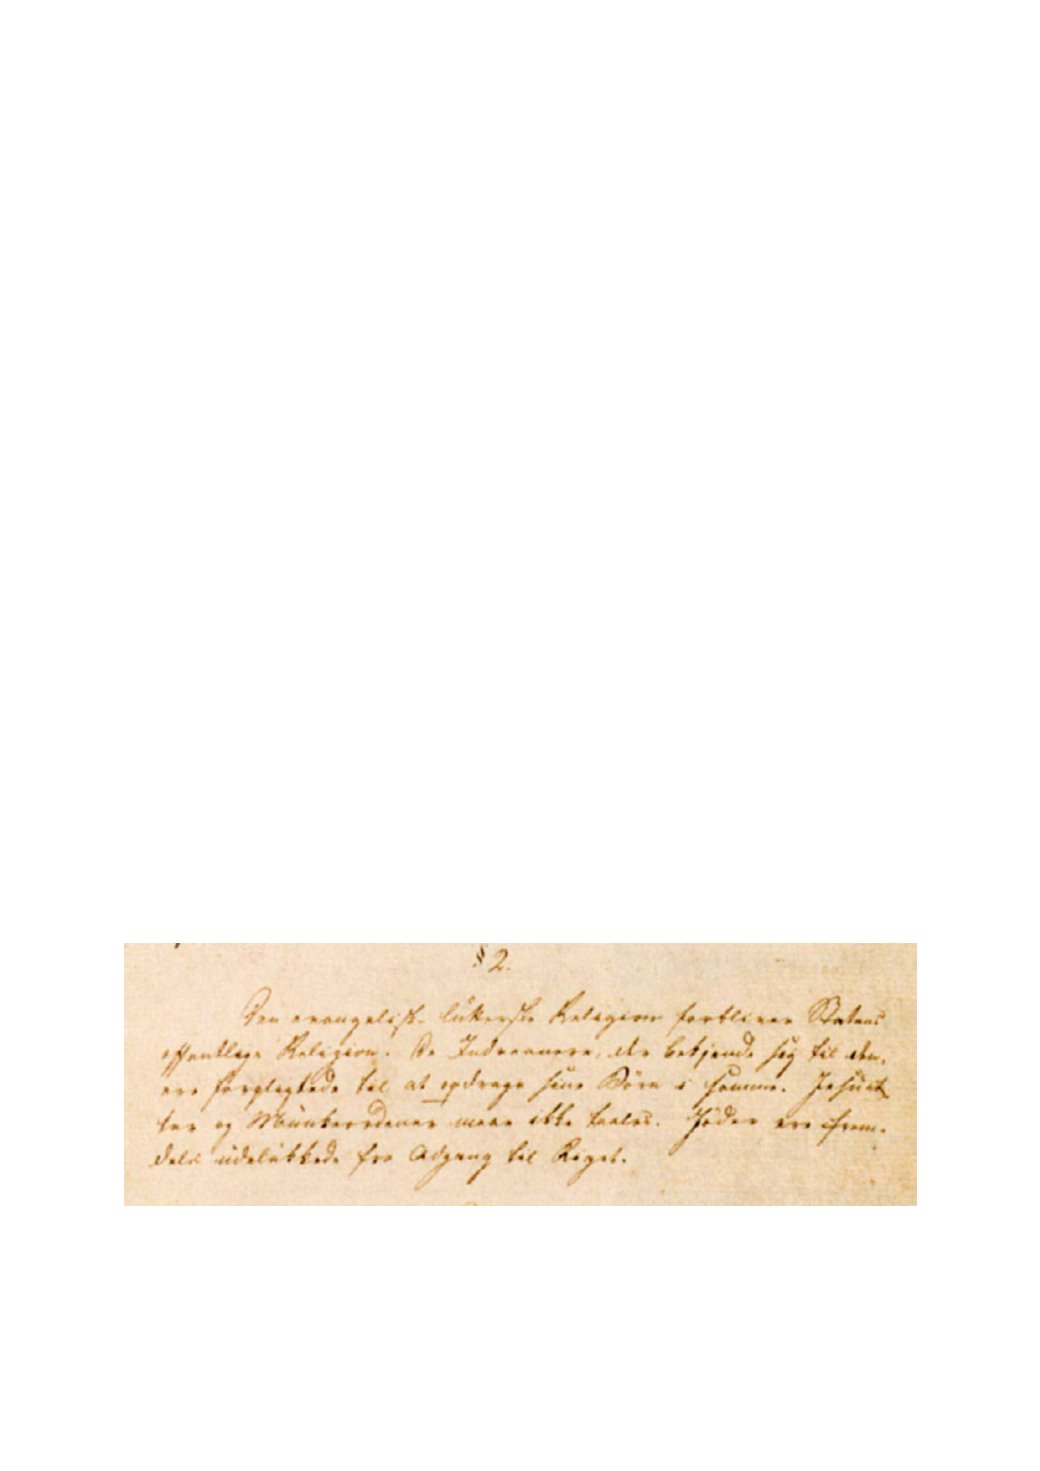 § 2.
Den evangelisk-lutherske Religion forbliver Statens
offentlige Religion. De Indvaanere, der bekjende sig til den,
ere forpligtede til at opdrage sine Børn i samme. Jesuit
ter og Munkeordener maae ikke taales. Jøder ere frem-
deles udelukkede fra Adgang til Riget.